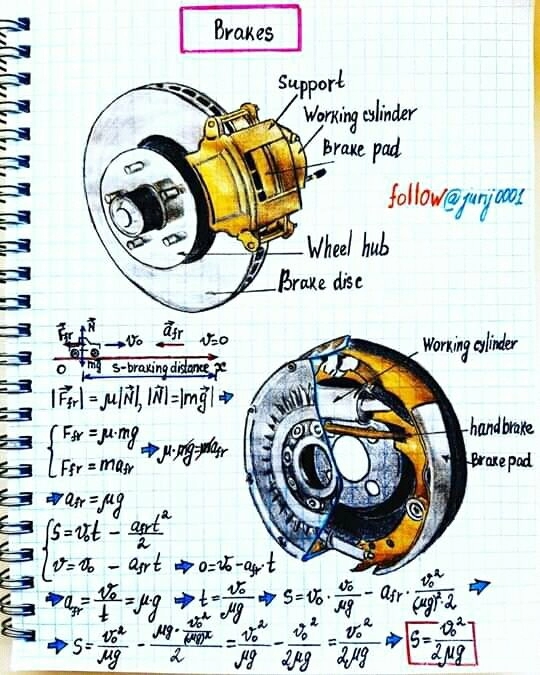 Brakes
Support
Working cylinder
Brake pad
follow@jurij0001
Wheel hub
Brake disc
F⃗fr N⃗ v⃗₀ a⃗fr v⃗=0
mg⃗
0 s-braking distance x
|F⃗fr| = μ|N⃗|, |N⃗| = |mg⃗| ⇒
Working cylinder
handbrake
Brake pad
{ Ffr = μ·mg
Ffr = mafr ⇒ μ·mg = mafr
⇒ afr = μg
{ S = v₀t - afrt²/2
v = v₀ - afrt ⇒ 0 = v₀ - afr·t
⇒ afr = v₀/t = μ·g ⇒ t = v₀/μg ⇒ S = v₀·v₀/μg - afr·v₀²/(μg)²·2 ⇒
⇒ S = v₀²/μg - μg·v₀²/(μg)²/2 = v₀²/μg - v₀²/2μg = v₀²/2μg ⇒ S = v₀²/2μg